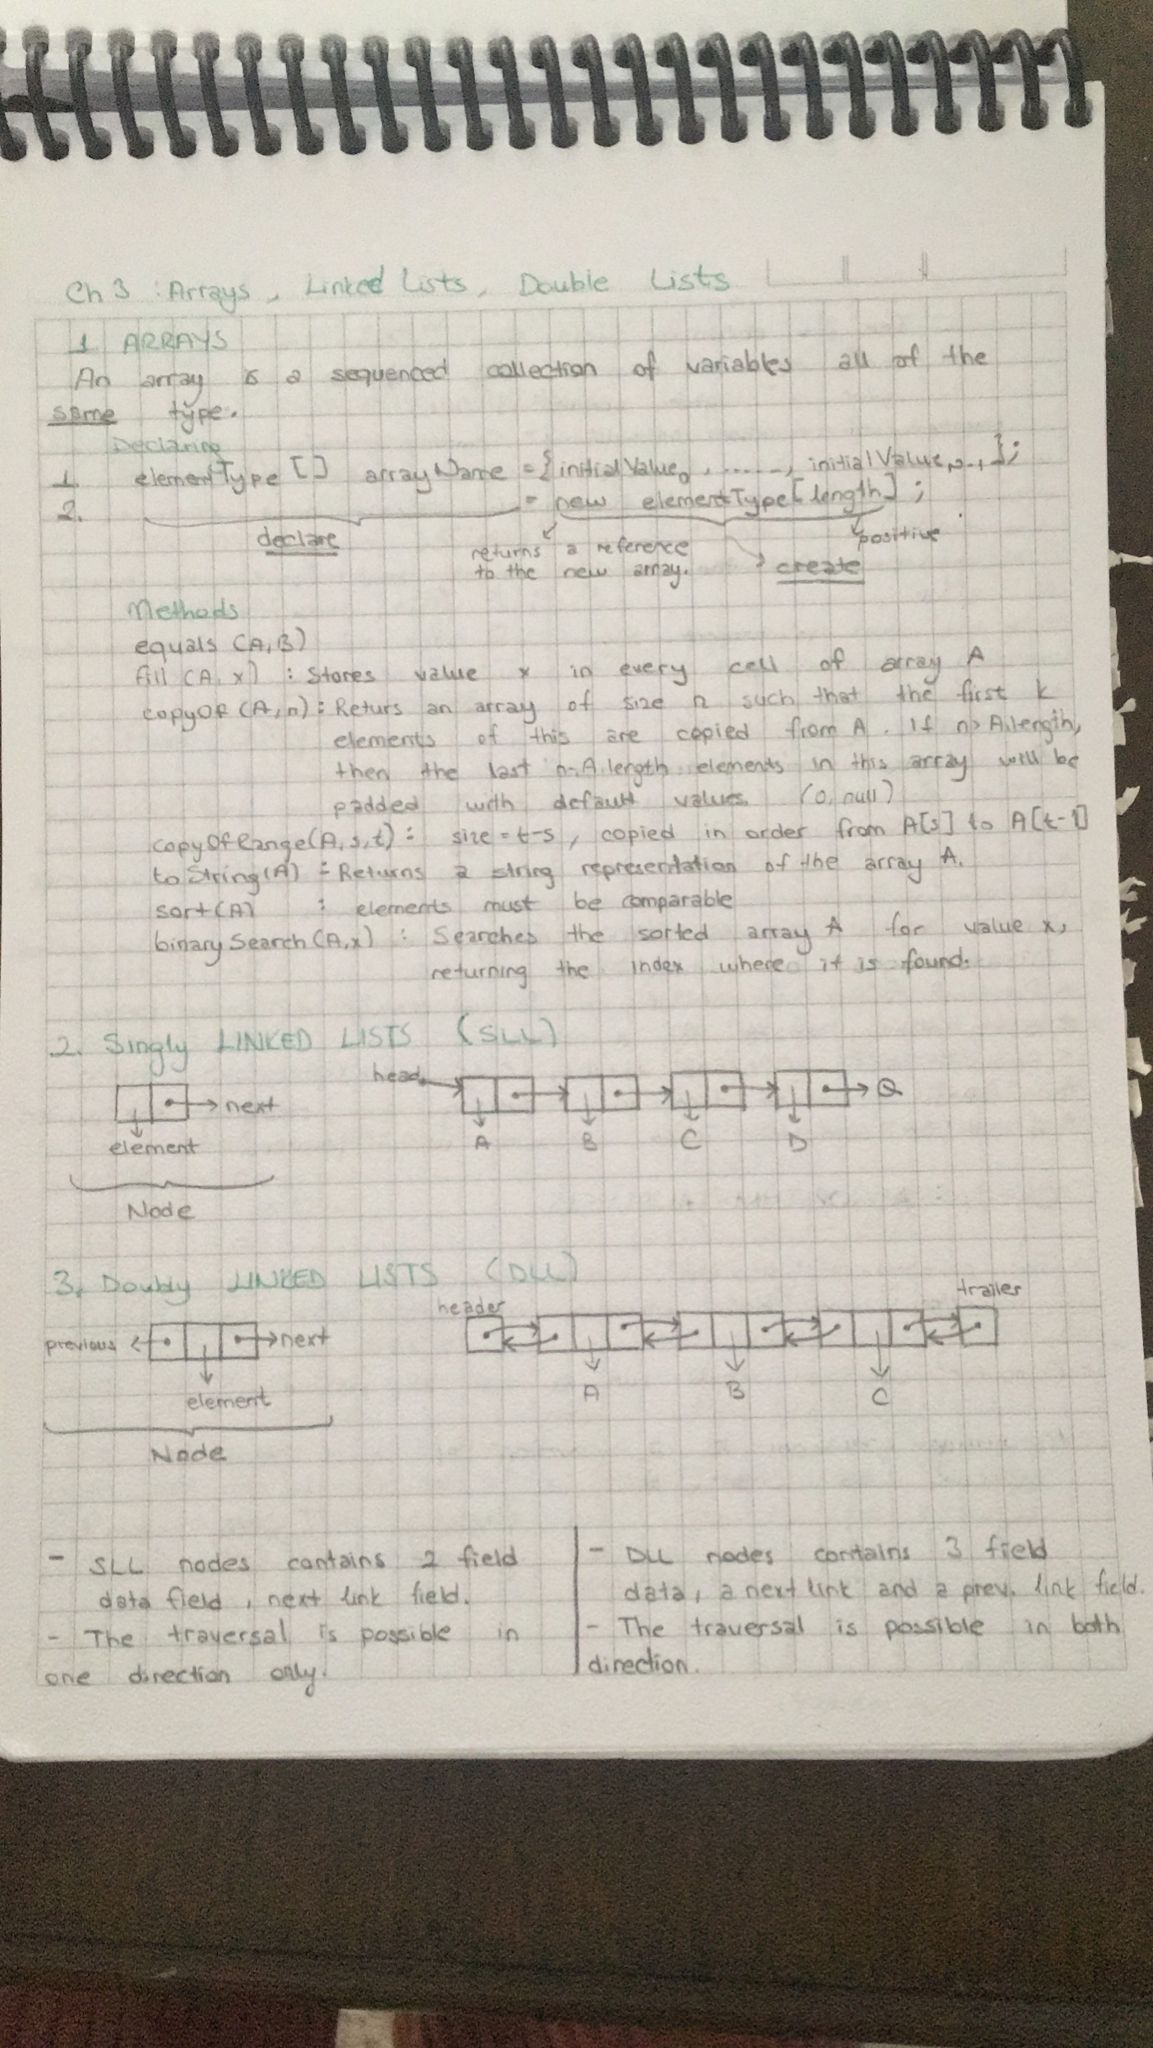 Ch 3 : Arrays, Linked Lists, Double Lists
1 ARRAYS
An array is a sequenced collection of variables all of the
same type.
Declaring
1. elementType [] arrayName = {initialValue0, ......, initialValuen-1};
2. = new elementType[length];
declare
returns a reference
to the new array.
create
positive
Methods
equals (A,B)
fill (A,x) : Stores value x in every cell of array A
copyOf (A,n) : Returs an array of size n such that the first k
elements of this are copied from A. If n>A.length,
then the last n-A.length elements in this array will be
padded with default values. (0, null)
copyOfRange(A,s,t) : size = t-s, copied in order from A[s] to A[t-1]
toString(A) : Returns a string representation of the array A.
sort(A) : elements must be comparable
binarySearch (A,x) : Searches the sorted array A for value x,
returning the index where it is found.
2. Singly LINKED LISTS (SLL)
head
next
element
A B C D
Node
3. Doubly LINKED LISTS (DLL)
header trailer
previous next
element
A B C
Node
- SLL nodes contains 2 field
data field, next link field.
- The traversal is possible in
one direction only.
- DLL nodes contains 3 field
data, a next link and a prev. link field.
- The traversal is possible in both
direction.